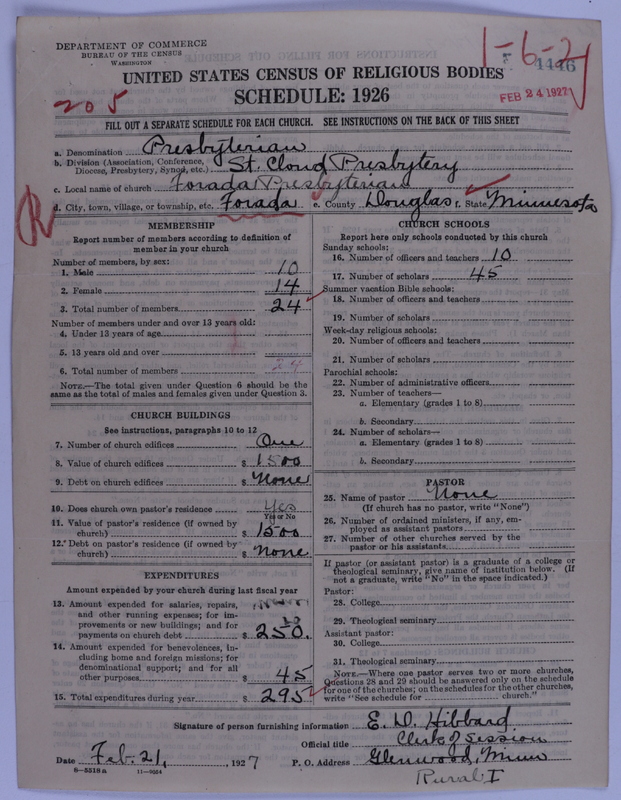 DEPARTMENT OF COMMERCE
BUREAU OF THE CENSUS
WASHINGTON
1-6-2
4446
UNITED STATES CENSUS OF RELIGIOUS BODIES
SCHEDULE: 1926
205
FEB 24 1927
FILL OUT A SEPARATE SCHEDULE FOR EACH CHURCH. SEE INSTRUCTIONS ON THE BACK OF THIS SHEET
a. Denomination Presbyterian
b. Division (Association, Conference, Diocese, Presbytery, Synod, etc.) St. Cloud Presbytery
c. Local name of church Forada Presbyterian
d. City, town, village, or township, etc. Forada e. County Douglas f. State Minnesota
R
MEMBERSHIP
Report number of members according to definition of
member in your church
Number of members, by sex:
1. Male 10
2. Female 14
3. Total number of members 24
Number of members under and over 13 years old:
4. Under 13 years of age
5. 13 years old and over
6. Total number of members 24
NOTE.—The total given under Question 6 should be the
same as the total of males and females given under Question 3.
CHURCH BUILDINGS
See instructions, paragraphs 10 to 12
7. Number of church edifices One
8. Value of church edifices $ 1500
9. Debt on church edifices $ None
10. Does church own pastor's residence Yes
Yes or No
11. Value of pastor's residence (if owned by
church) $ 1500
12. Debt on pastor's residence (if owned by
church) $ None
EXPENDITURES
Amount expended by your church during last fiscal year
13. Amount expended for salaries, repairs,
and other running expenses; for im-
provements or new buildings; and for
payments on church debt $ 250.
14. Amount expended for benevolences, in-
cluding home and foreign missions; for
denominational support; and for all
other purposes $ 45
15. Total expenditures during year $ 295
CHURCH SCHOOLS
Report here only schools conducted by this church
Sunday schools:
16. Number of officers and teachers 10
17. Number of scholars 45
Summer vacation Bible schools:
18. Number of officers and teachers
19. Number of scholars
Week-day religious schools:
20. Number of officers and teachers
21. Number of scholars
Parochial schools:
22. Number of administrative officers
23. Number of teachers—
a. Elementary (grades 1 to 8)
b. Secondary
24. Number of scholars—
a. Elementary (grades 1 to 8)
b. Secondary
PASTOR
25. Name of pastor None
(If church has no pastor, write "None")
26. Number of ordained ministers, if any, em-
ployed as assistant pastors
27. Number of other churches served by the
pastor or his assistants
If pastor (or assistant pastor) is a graduate of a college or
theological seminary, give name of institution below. (If
not a graduate, write "No" in the space indicated.)
Pastor:
28. College
29. Theological seminary
Assistant pastor:
30. College
31. Theological seminary
NOTE.—Where one pastor serves two or more churches,
Questions 28 and 29 should be answered only on the schedule
for one of the churches; on the schedules for the other churches,
write "See schedule for church."
Signature of person furnishing information E. D. Hibbard
Official title Clerk of Session
Date Feb. 21, 1927 P. O. Address Glenwood, Minn
8-5518a 11-9034
Rural 1